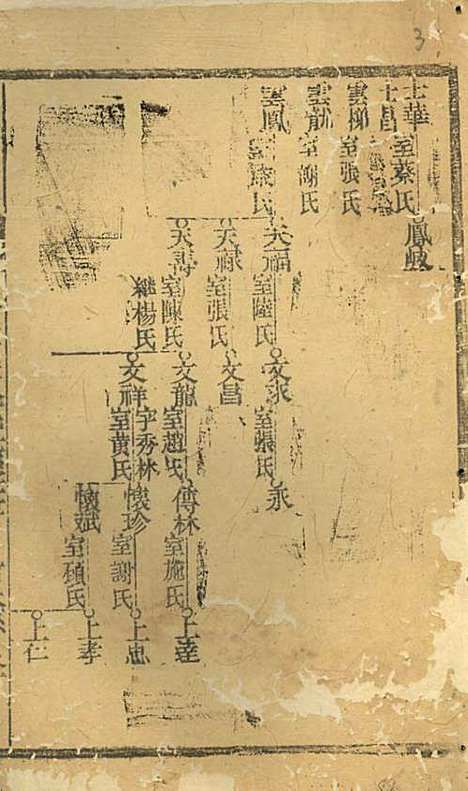 3
士華
室蔡氏
鳳岐
士昌
雲梯
室張氏
雲龍
室謝氏
雲鳳
氏
天福
室陸氏
文求
室張氏
永
天祿
室張氏
文昌
天壽
室陳氏
継楊氏
文龍
室趙氏
傳林
室施氏
上達
文祥
字秀林
室黄氏
懷珍
室謝氏
上忠
懷斌
室顧氏
上孝
上仁